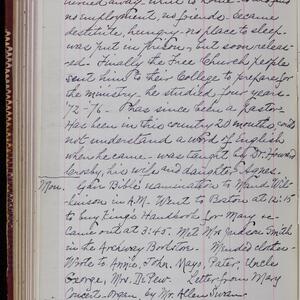 turned away, went to Rome
no employment, no friends, became
destitute, hungry - no place to sleep
was put in prison, but soon releas-
ed. Finally the Free Church people
sent him to their College to prepare for
the ministry. he studied four years
'72-'76 - has since been a pastor.
Has been in this country 20 months, could
not understand a word of English
when he came - was taught by Dr. Howard
Crosby, his wife and daughter Agnes.
Mon. Gave Bible nomination to Maud Wil-
kinson in A.M. Went to Boston at 12:15
to buy King's Handbook for Mary &
came out at 3:45. Met Mrs. Judson Smith
in the Archway Bookstore. Mended clothes
Wrote to Annie, John, Mays, Pater, Uncle
George, Mrs. DePew. Letter from Mary
Concert-Organ by Mr. Allen Swan